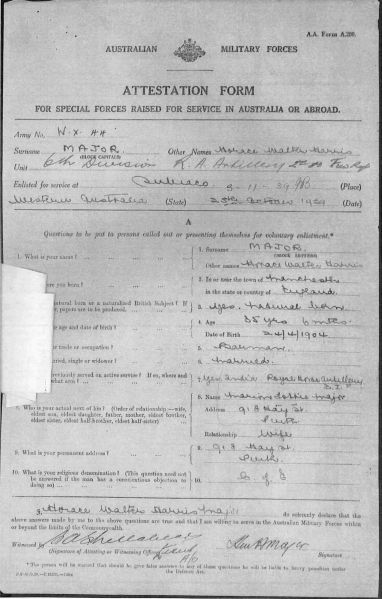 A.A. Form A.200.
AUSTRALIAN MILITARY FORCES
ATTESTATION FORM
FOR SPECIAL FORCES RAISED FOR SERVICE IN AUSTRALIA OR ABROAD.
Army No. W.X. 44
Surname MAJOR Other Names Horace Walter Harris
(BLOCK CAPITALS)
Unit 6th Division R.A. Artillery
Enlisted for service at Subiaco 3-11-39 (Place)
Western Australia (State) October 1939 (Date)
A
Questions to be put to persons called out or presenting themselves for voluntary enlistment.*
1. What is your name?
1. Surname MAJOR
(BLOCK LETTERS)
Other names Horace Walter Harris
you born?
2. In or near the town of Manchester
in the state or country of England
natural born or a naturalised British Subject? If
papers are to be produced.
3. Yes. Natural born
age and date of birth?
4. Age 35 yrs 6 mths
Date of Birth 24/4/1904
trade or occupation?
5. Barman
single or widower?
6. Married
previously served on active service? If so, where and
what arm?
7. Yes India Royal Horse Artillery
8. Who is your actual next of kin? (Order of relationship—wife,
eldest son, eldest daughter, father, mother, eldest brother,
eldest sister, eldest half-brother, eldest half-sister)
8. Name Major
Address 918 Hay St.
Perth
Relationship Wife
9. What is your permanent address?
9. 918 Hay St
Perth
10. What is your religious denomination? (This question need not
be answered if the man has a conscientious objection to
doing so)
10. C of E
I, Horace Walter Harris Major do solemnly declare that the
above answers made by me to the above questions are true and that I am willing to serve in the Australian Military Forces within
or beyond the limits of the Commonwealth.
Witnessed by
(Signature of Attesting or Witnessing Officer) Signature
*The person will be warned that should he give false answers to any of these questions he will be liable to heavy penalties under
the Defence Act.